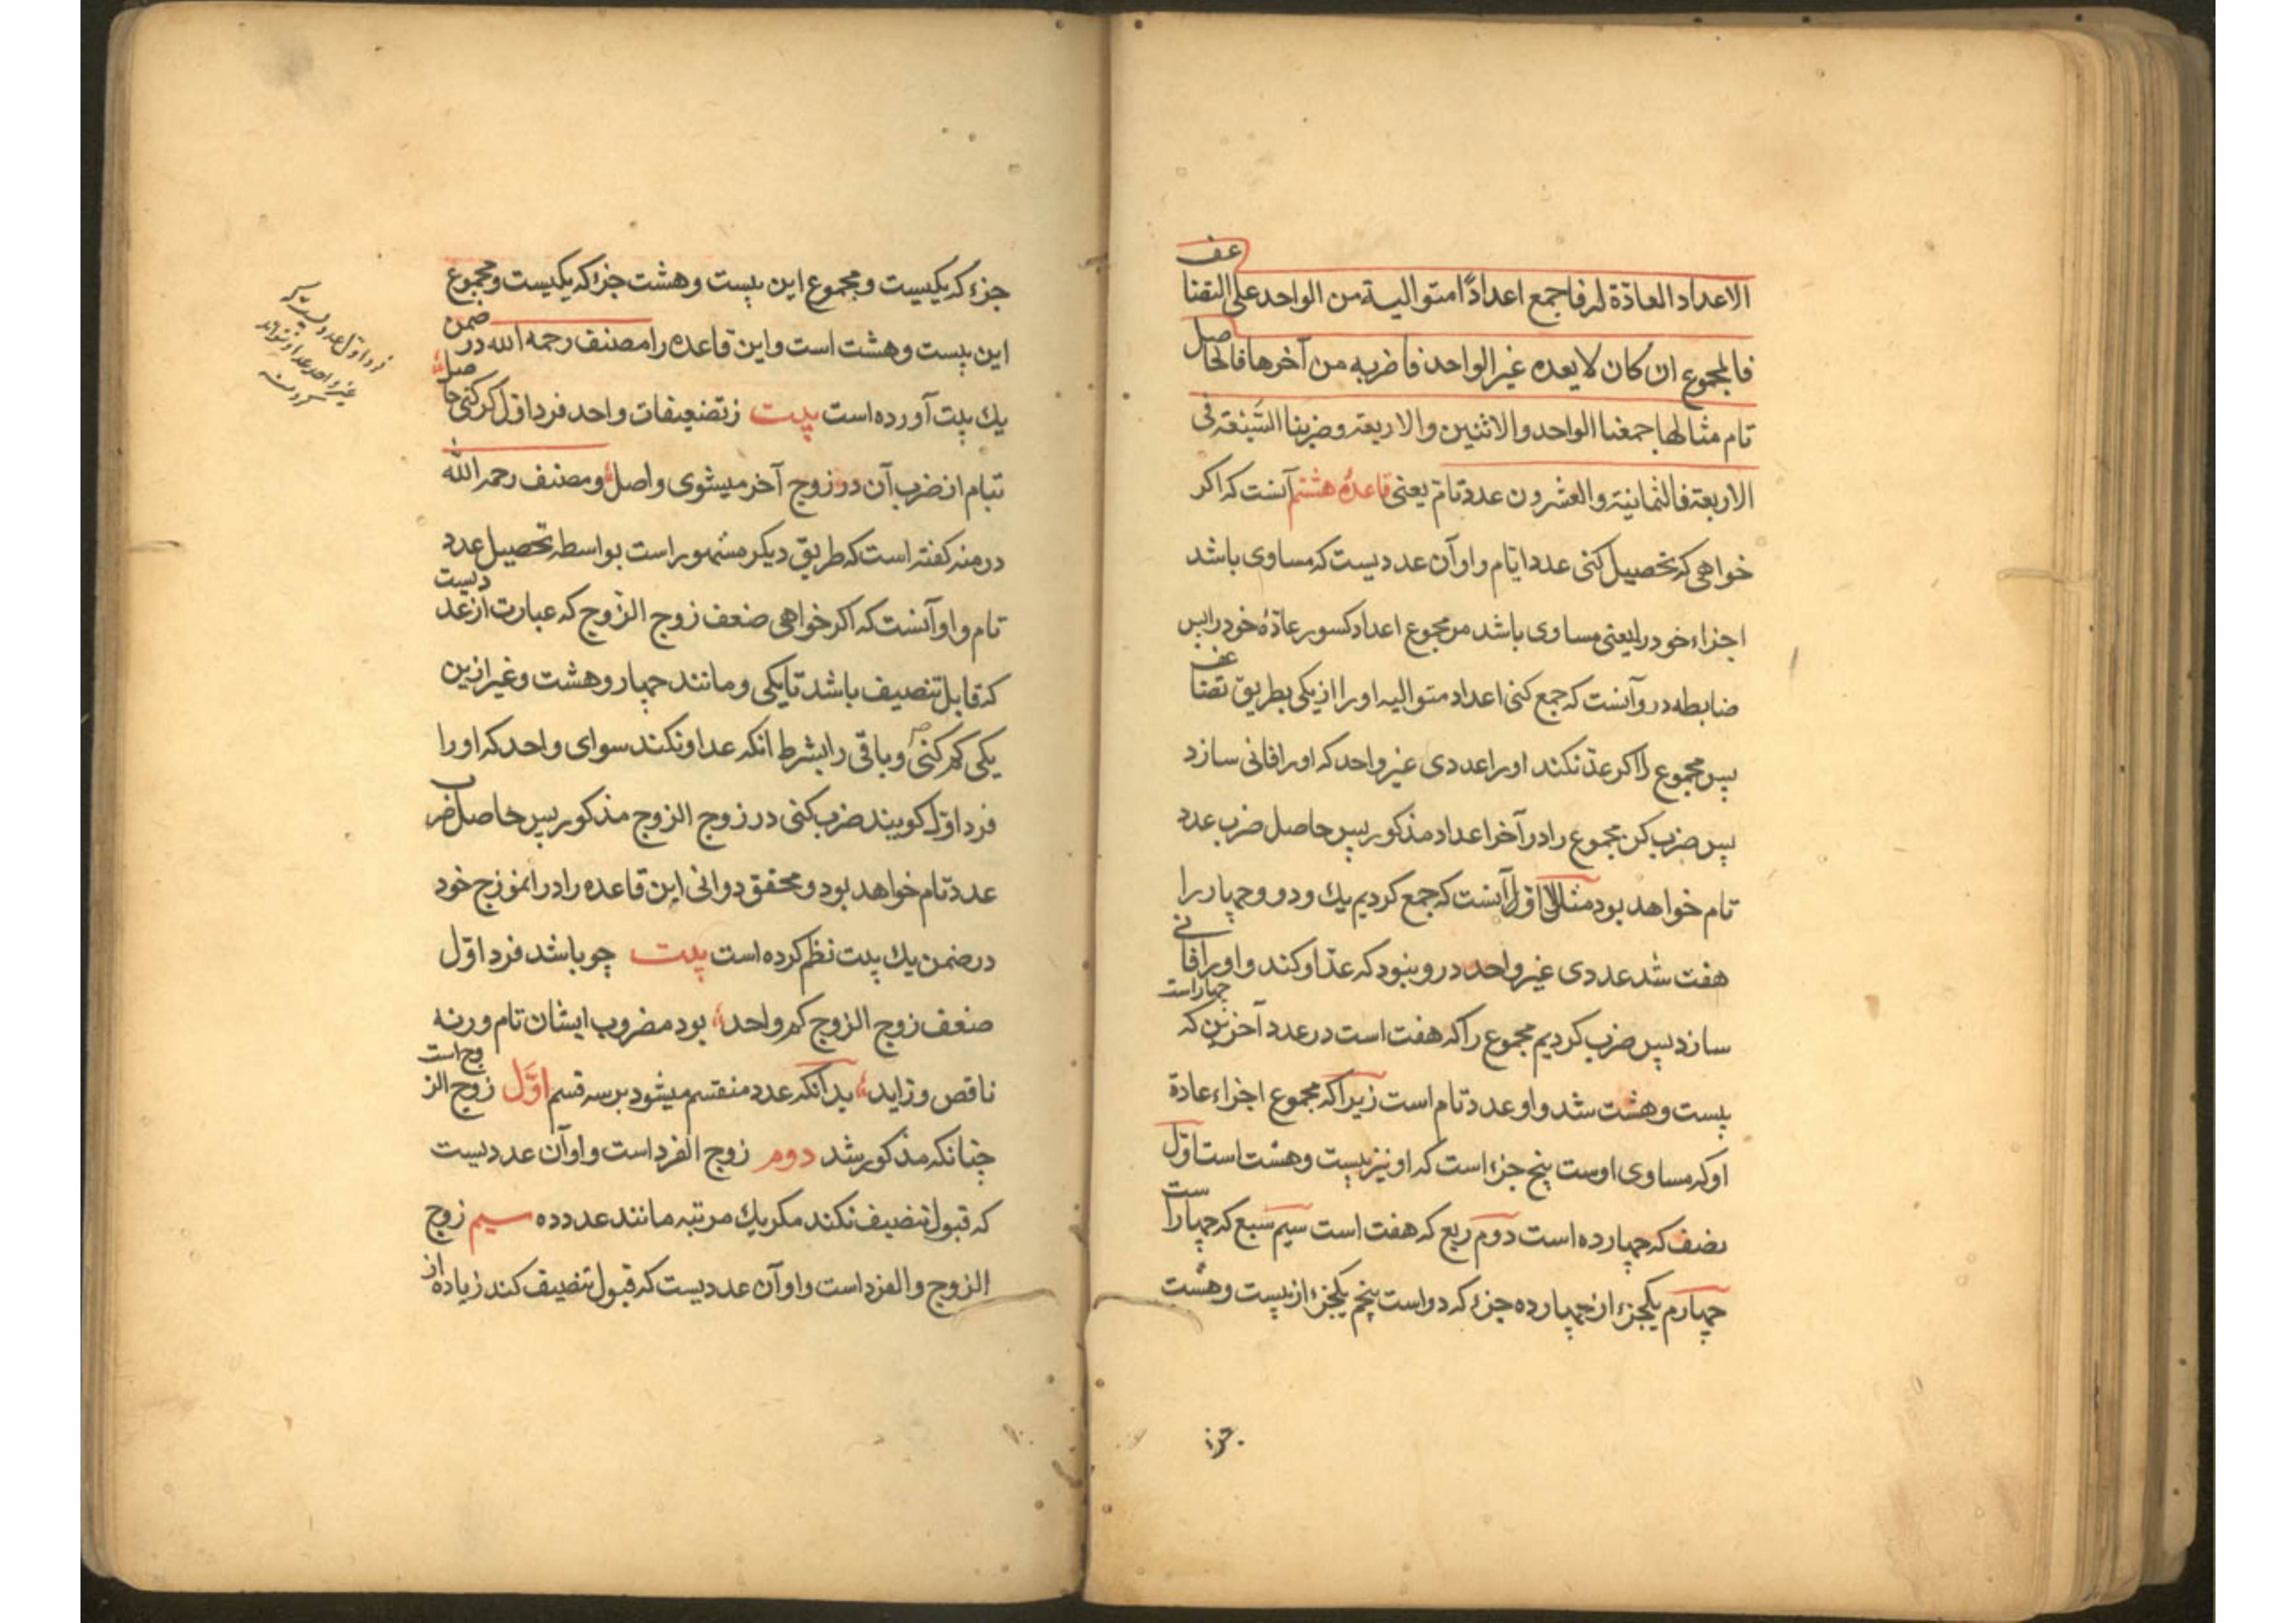 الاعداد العادّة له فاجمع اعداداً متوالیة من الواحد علی التضاعف
فالمجموع ان کان لا یعده غیر الواحد فاضربه من آخرها فالحاصل
تام مثالها جمعنا الواحد والاثنین والاربعة وضربنا السَّبْعَة فی
الاربعة فالثمانیة والعشرون عدد تامّ یعنی قاعدهٔ هشتم آنست که اکر
خواهی که تحصیل کنی عدد ایام و او آن عددیست که مساوی باشد
اجزاء خود را یعنی مساوی باشد مر مجموع اعداد کسور عادّهٔ خود را پس
ضابطه درو آنست که جمع کنی اعداد متوالیه او را از یکی بطریق تضاعف
پس مجموع را اکر عدّ نکند او را عددی غیر واحد که او را فانی سازد
پس ضرب کن مجموع را در آخر اعداد مذکور پس حاصل ضرب عدد
تام خواهد بود مثال اوّل آنست که جمع کردیم یك و دو و چهار را
هفت شد عددی غیر واحد درو نبود که عدّ او کند و او را فانی
سازد پس ضرب کردیم مجموع را که هفت است در عدد آخرین که چهار است
بیست و هشت شد و او عدد تام است زیرا که مجموع اجزاء عادة
او که مساوی اوست پنج جزء است که او نیز بیست و هشت است اوّل
نصف که چهارده است دوم ربع که هفت است سیم سبع که چهار است
چهارم یکجزء از چهارده جزء که دو است پنجم یکجزء از بیست و هشت
جزء
جزء که یکیست و مجموع این بیست و هشت جزء که یکیست و مجموع
این بیست و هشت است و این قاعده را مصنف رحمه الله در ضمن
یك بیت آورده است بیت ز تضعیفات واحد فرد اوّل کر کنی حاصل
بتام از ضرب آن در زوج آخر میشوی واصل و مصنف رحمه الله
در منه کفته است که طریق دیکر مشهور است بواسطه تحصیل عدد
تام و او آنست که اکر خواهی ضعف زوج الزّوج که عبارت از عددیست
که قابل تنصیف باشد تا یکی و مانند چهار و هشت و غیر ازین
یکی کم کنی و باقی را بشرط انکه عد او نکند سوای واحد که او را
فرد اوّل کویند ضرب کنی در زوج الزوج مذکور پس حاصل ضرب
عدد تام خواهد بود و محقق دوانی این قاعده را در انموزج خود
در ضمن یك بیت نظم کرده است بیت چو باشد فرد اوّل
ضعف زوج الزوج کم واحد بود مضروب ایشان تام ورنه
ناقص و زاید بدانکه عدد منقسم میشود بر سه قسم اوَّل زوج الزوج است
چنانکه مذکور شد دوم زوج الفرد است و او آن عددیست
که قبول تنصیف نکند مکر یك مرتبه مانند عدد ده سیم زوج
الزوج و الفرد است و او آن عددیست که قبول تنصیف کند زیاده از
فرد اوّل عددیست که
غیر واحد عد او نتواند
کرد منه